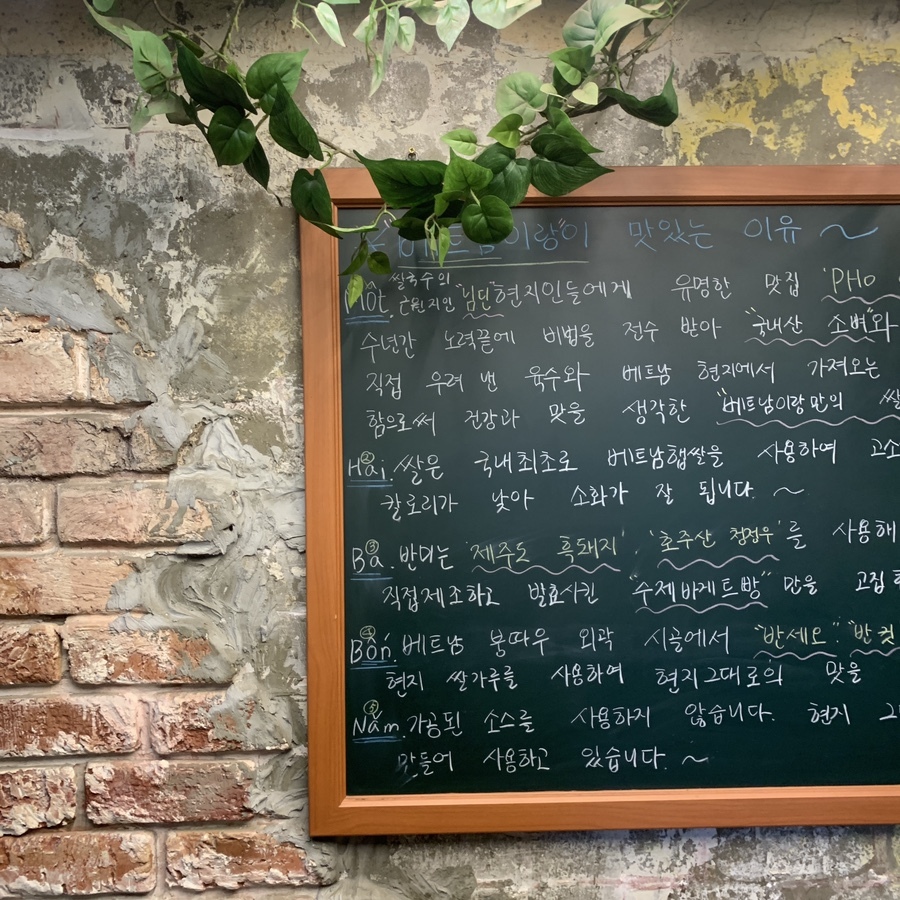 "베트남이랑"이 맛있는 이유 ~
쌀국수의
Một. 근원지인 "남딘"현지인들에게 유명한 맛집 'PHO
수년간 노력끝에 비법을 전수 받아 "국내산 소뼈"와
직접 우려 낸 육수와 베트남 현지에서 가져오는
함으로써 건강과 맛을 생각한 "베트남이랑만의 쌀
② Hai. 쌀은 국내최초로 베트남햅쌀을 사용하여 고소
칼로리가 낮아 소화가 잘 됩니다. ~
③ Ba. 반미는 '제주도 흑돼지'. '호주산 청정우'를 사용해
직접제조하고 발효시킨 "수제바게트빵"만을 고집
④ Bốn. 베트남 북따우 외곽 시골에서 "반세오". "반컷
현지 쌀가루를 사용하여 현지그대로의 맛을
⑤ Năm. 가공된 소스를 사용하지 않습니다. 현지 그
만들어 사용하고 있습니다. ~